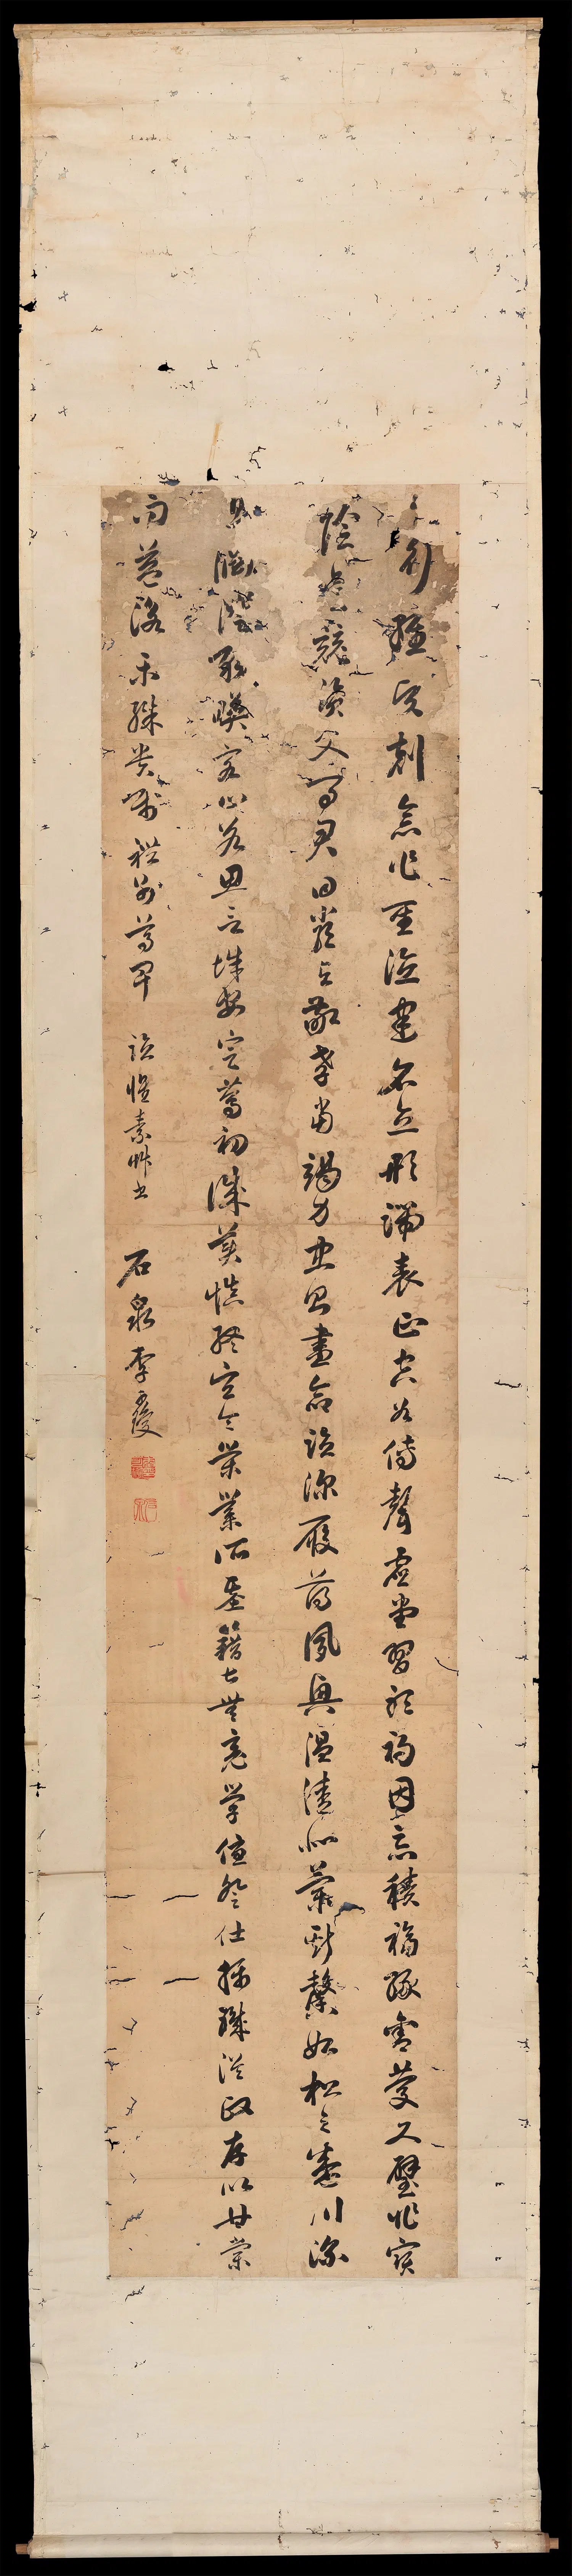 行維賢剋念作聖德建名立形端表正空谷傳聲虛堂習聽禍因惡積福緣善慶尺璧非寶
陰是競資父事君曰嚴與敬孝當竭力忠則盡命臨深履薄夙興溫清似蘭斯馨如松之盛川流
息淵澄取映容止若思言辭安定篤初誠美慎終宜令榮業所基籍甚無竟學優登仕攝職從政存以甘棠
而益詠樂殊貴賤禮別尊卑 臨懷素草書 石泉李